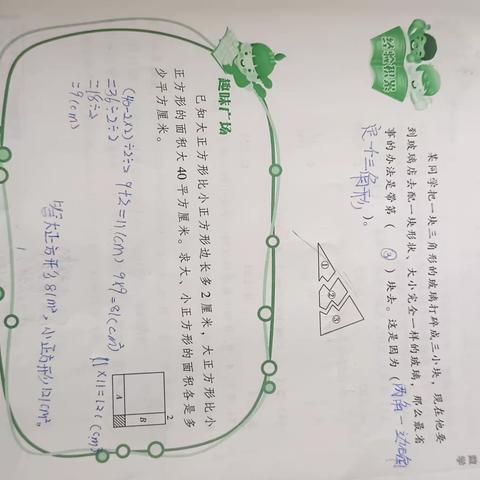 数学
某同学把一块三角形的玻璃打碎成三小块,现在他要
到玻璃店去配一块形状、大小完全一样的玻璃,那么最省
事的办法是带第( ③ )块去。这是因为(两角一边
定一个三角形)。
①
②
③
趣味广场
已知大正方形比小正方形边长多2厘米,大正方形比小
正方形的面积大40平方厘米。求大、小正方形的面积各是多
少平方厘米。
(40-2×2)÷2÷2 9+2=11(cm) 9×9=81(cm²) 11×11=121(cm²)
=36÷2÷2
=18÷2
=9(cm)
2
A
B
答:大正方形81cm²,小正方形121cm²。